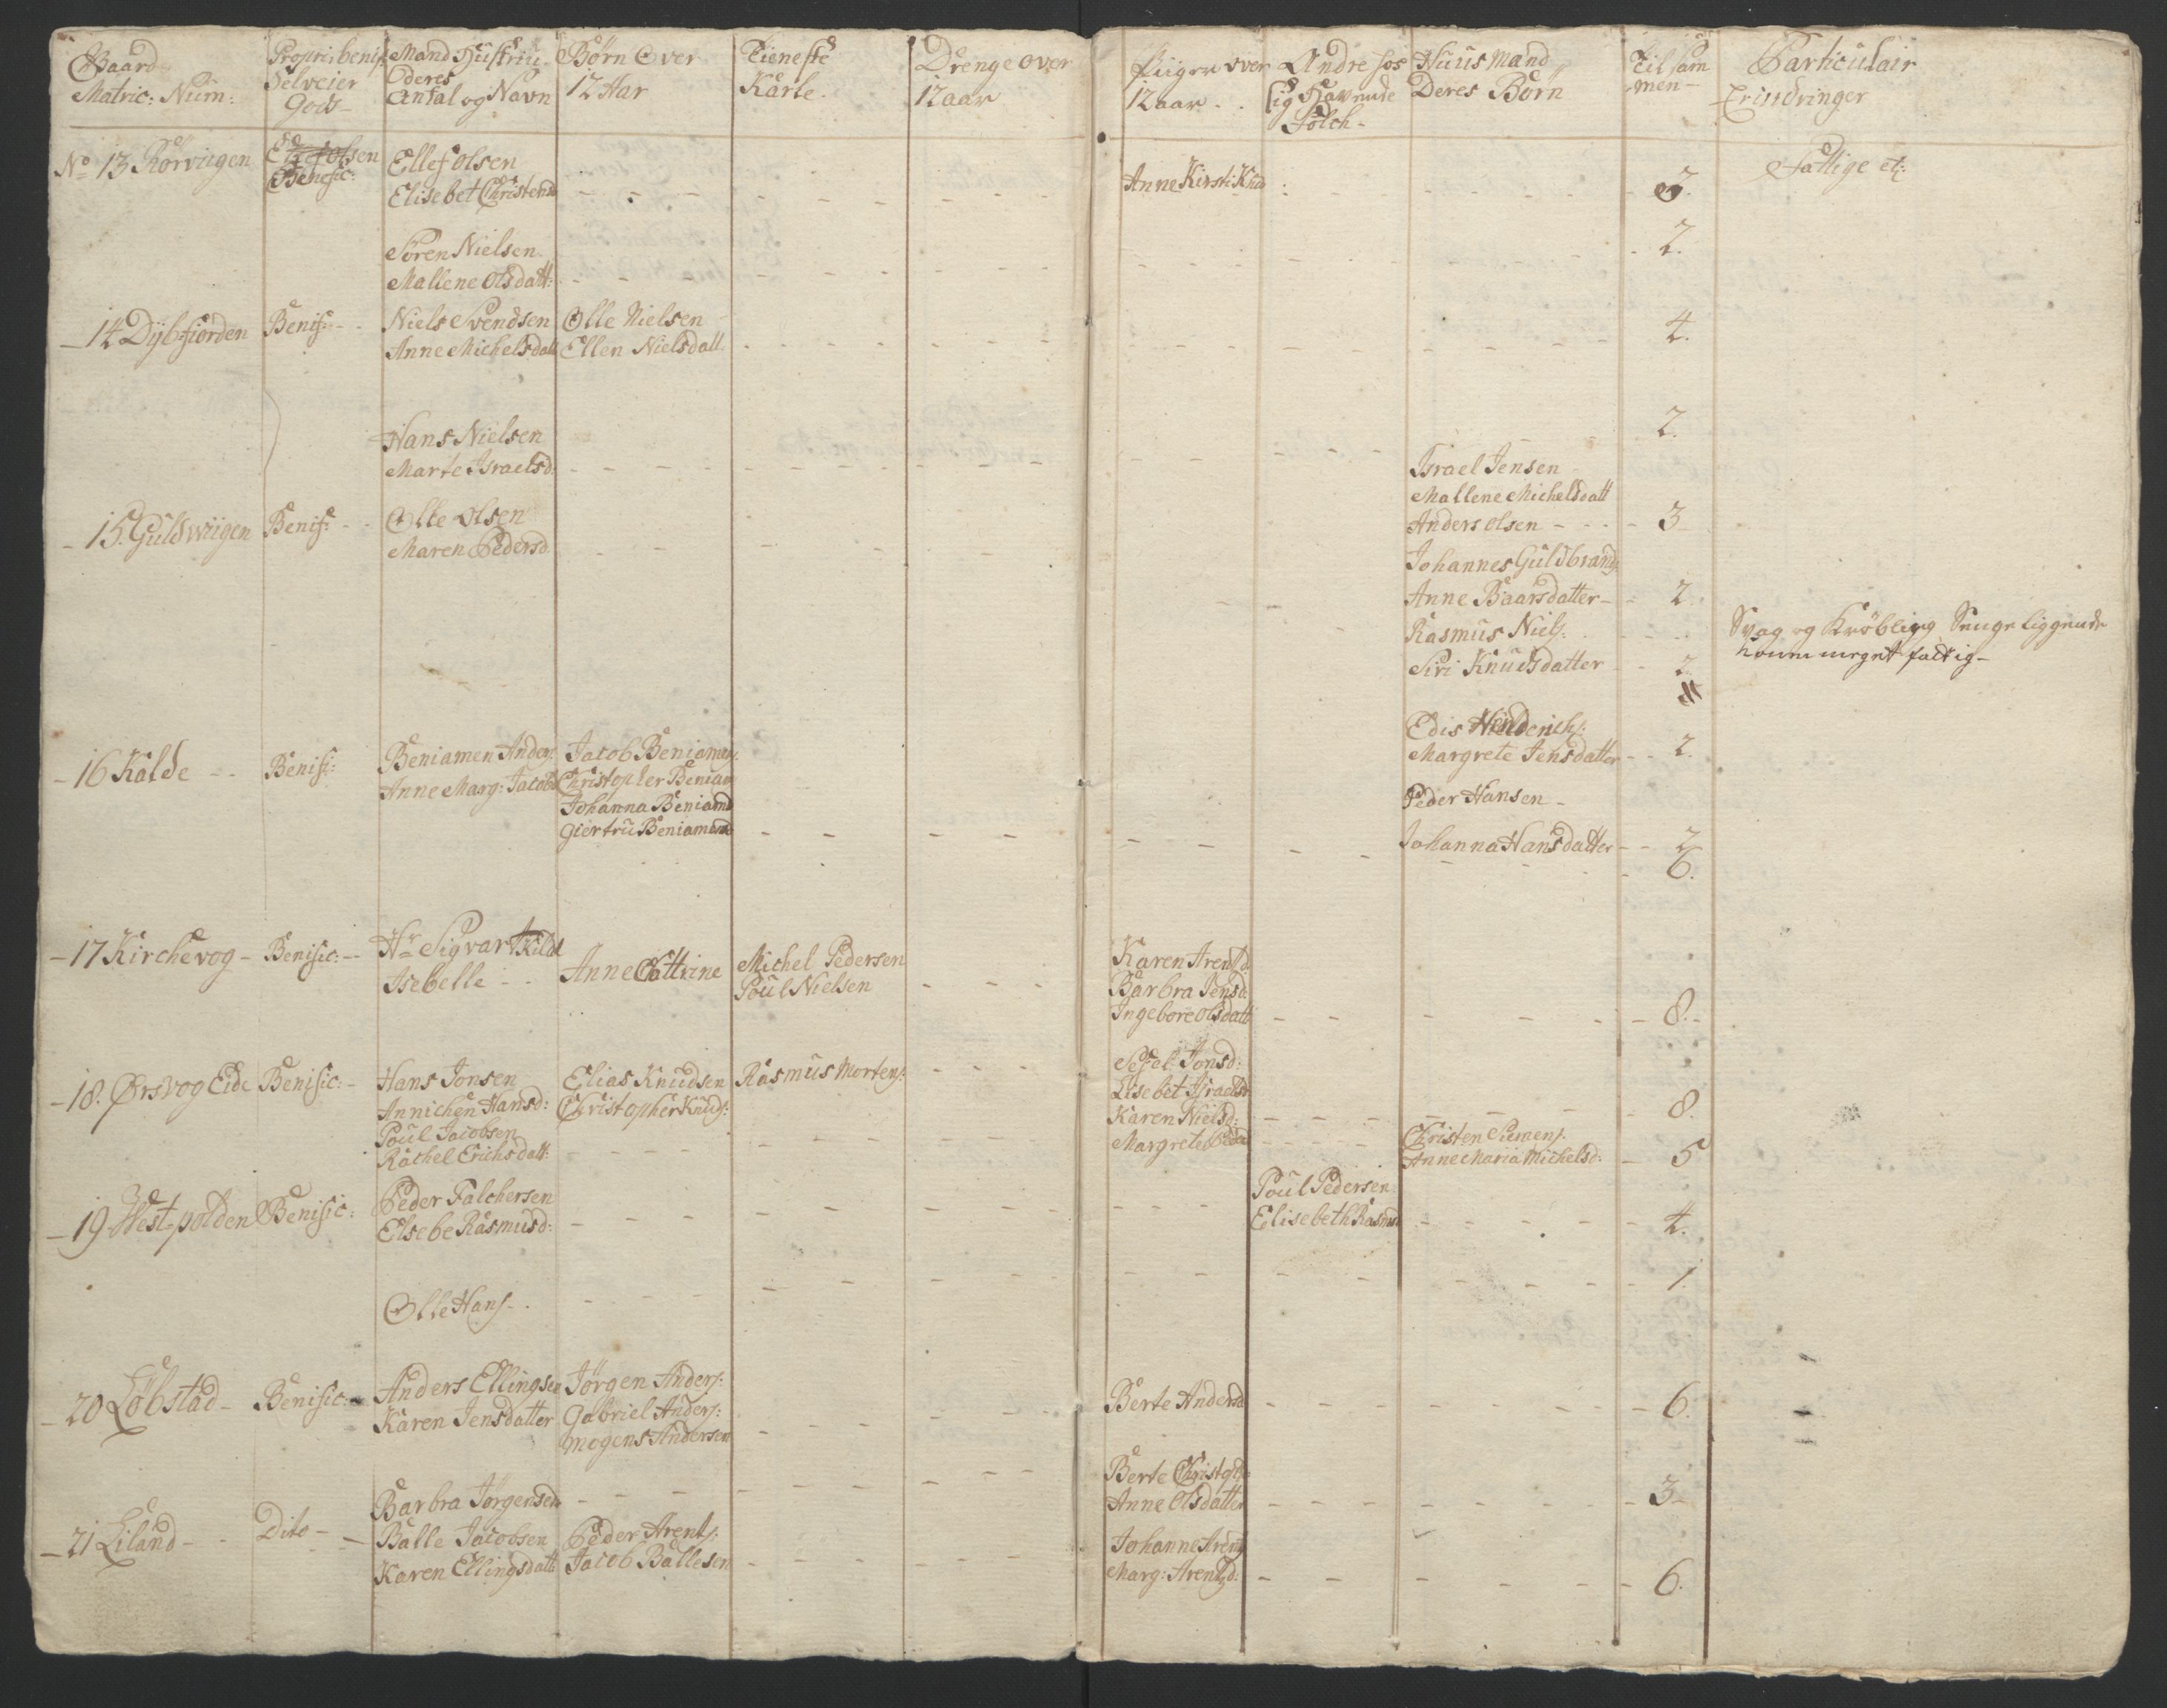 Gaard Matric: Num:
Propri: benif: Selveier Gods
Mand Hustrue Deres Antal og Navn
Børn Over 12 Aar
Tieneste Karle.
Drenge over 12 aar
Piiger over 12 aar
Andre hos sig Havende Folch
Huusmand Deres Børn
Tilsammen
Particulair Erindringer
No 13 Rørviigen
Benefic:
Ellef Olsen
Elisebet Christensd
Anne Kirsti Knud
3.
Fattige etc:
Søren Nielsen
Mallene Olsdatt:
2.
14 Dybfiorden
Benif:
Niels Svendsen
Anne Michelsdatt
Olle Nielsen
Ellen Nielsdatt
4.
Hans Nielsen
Marte Israelsd:
2.
Israel Jensen
Mallene Michelsdatt
Anders Olsen
3
15. Guldwiigen
Benif:
Olle Olsen
Maren Pedersd.
Johannes Guldbrands:
Anne Baarsdatter
2
Rasmus Niels:
Siri Knudsdatter
2
Svag og Krøbling Senge liggende
meget fattig
Edis Hendrichs:
Margrete Jensdatter
2.
Peder Hansen
Johanna Hansdatter
2
16 Kalde
Benif:
Beniamen Anders:
Anne Marg: Jacobs
Jacob Beniamens
Christopher Beniam
Johanna Beniamd
Giertru Beniamend
6.
17 Kirchevog
Benific:
Hr Sigvart Kildal
Isebelle
Anne Cattrine
Michel Pedersen
Poul Nielsen
Karen Arentzd
Barbra Jensd:
Ingebore Olsdatt
8.
18. Ørsvog Eide
Benific:
Hans Jonsen
Annichen Hansd:
Elias Knudsen
Christopher Knuds:
Rasmus Mortens:
Sessel Jonsd:
Lisebet Israelsd
Karen Nielsd:
8.
Poul Jacobsen
Rachel Erichsdatt:
Margrete Pedersd
Christen Siemens:
Anne Maria Michelsd:
5
19 Westpolden
Benific:
Peder Falchersen
Elsebe Rasmusd:
Poul Pedersen
Elisebeth Rasmusd
4.
Olle Hans:
1.
20 Løbstad
Benific:
Anders Ellingsen
Karen Jensdatter
Jørgen Anders:
Gabriel Anders:
Mogens Andersen
Berte Andersd
6.
Barbra Jørgensen
Berte Christophs
Anne Olsdatter
3
21 Liland
Dito
Balle Jacobsen
Karen Ellingsdatt
Peder Arents:
Jacob Ballesen
Johanne Arentz
Marg: Arentzd:
6.